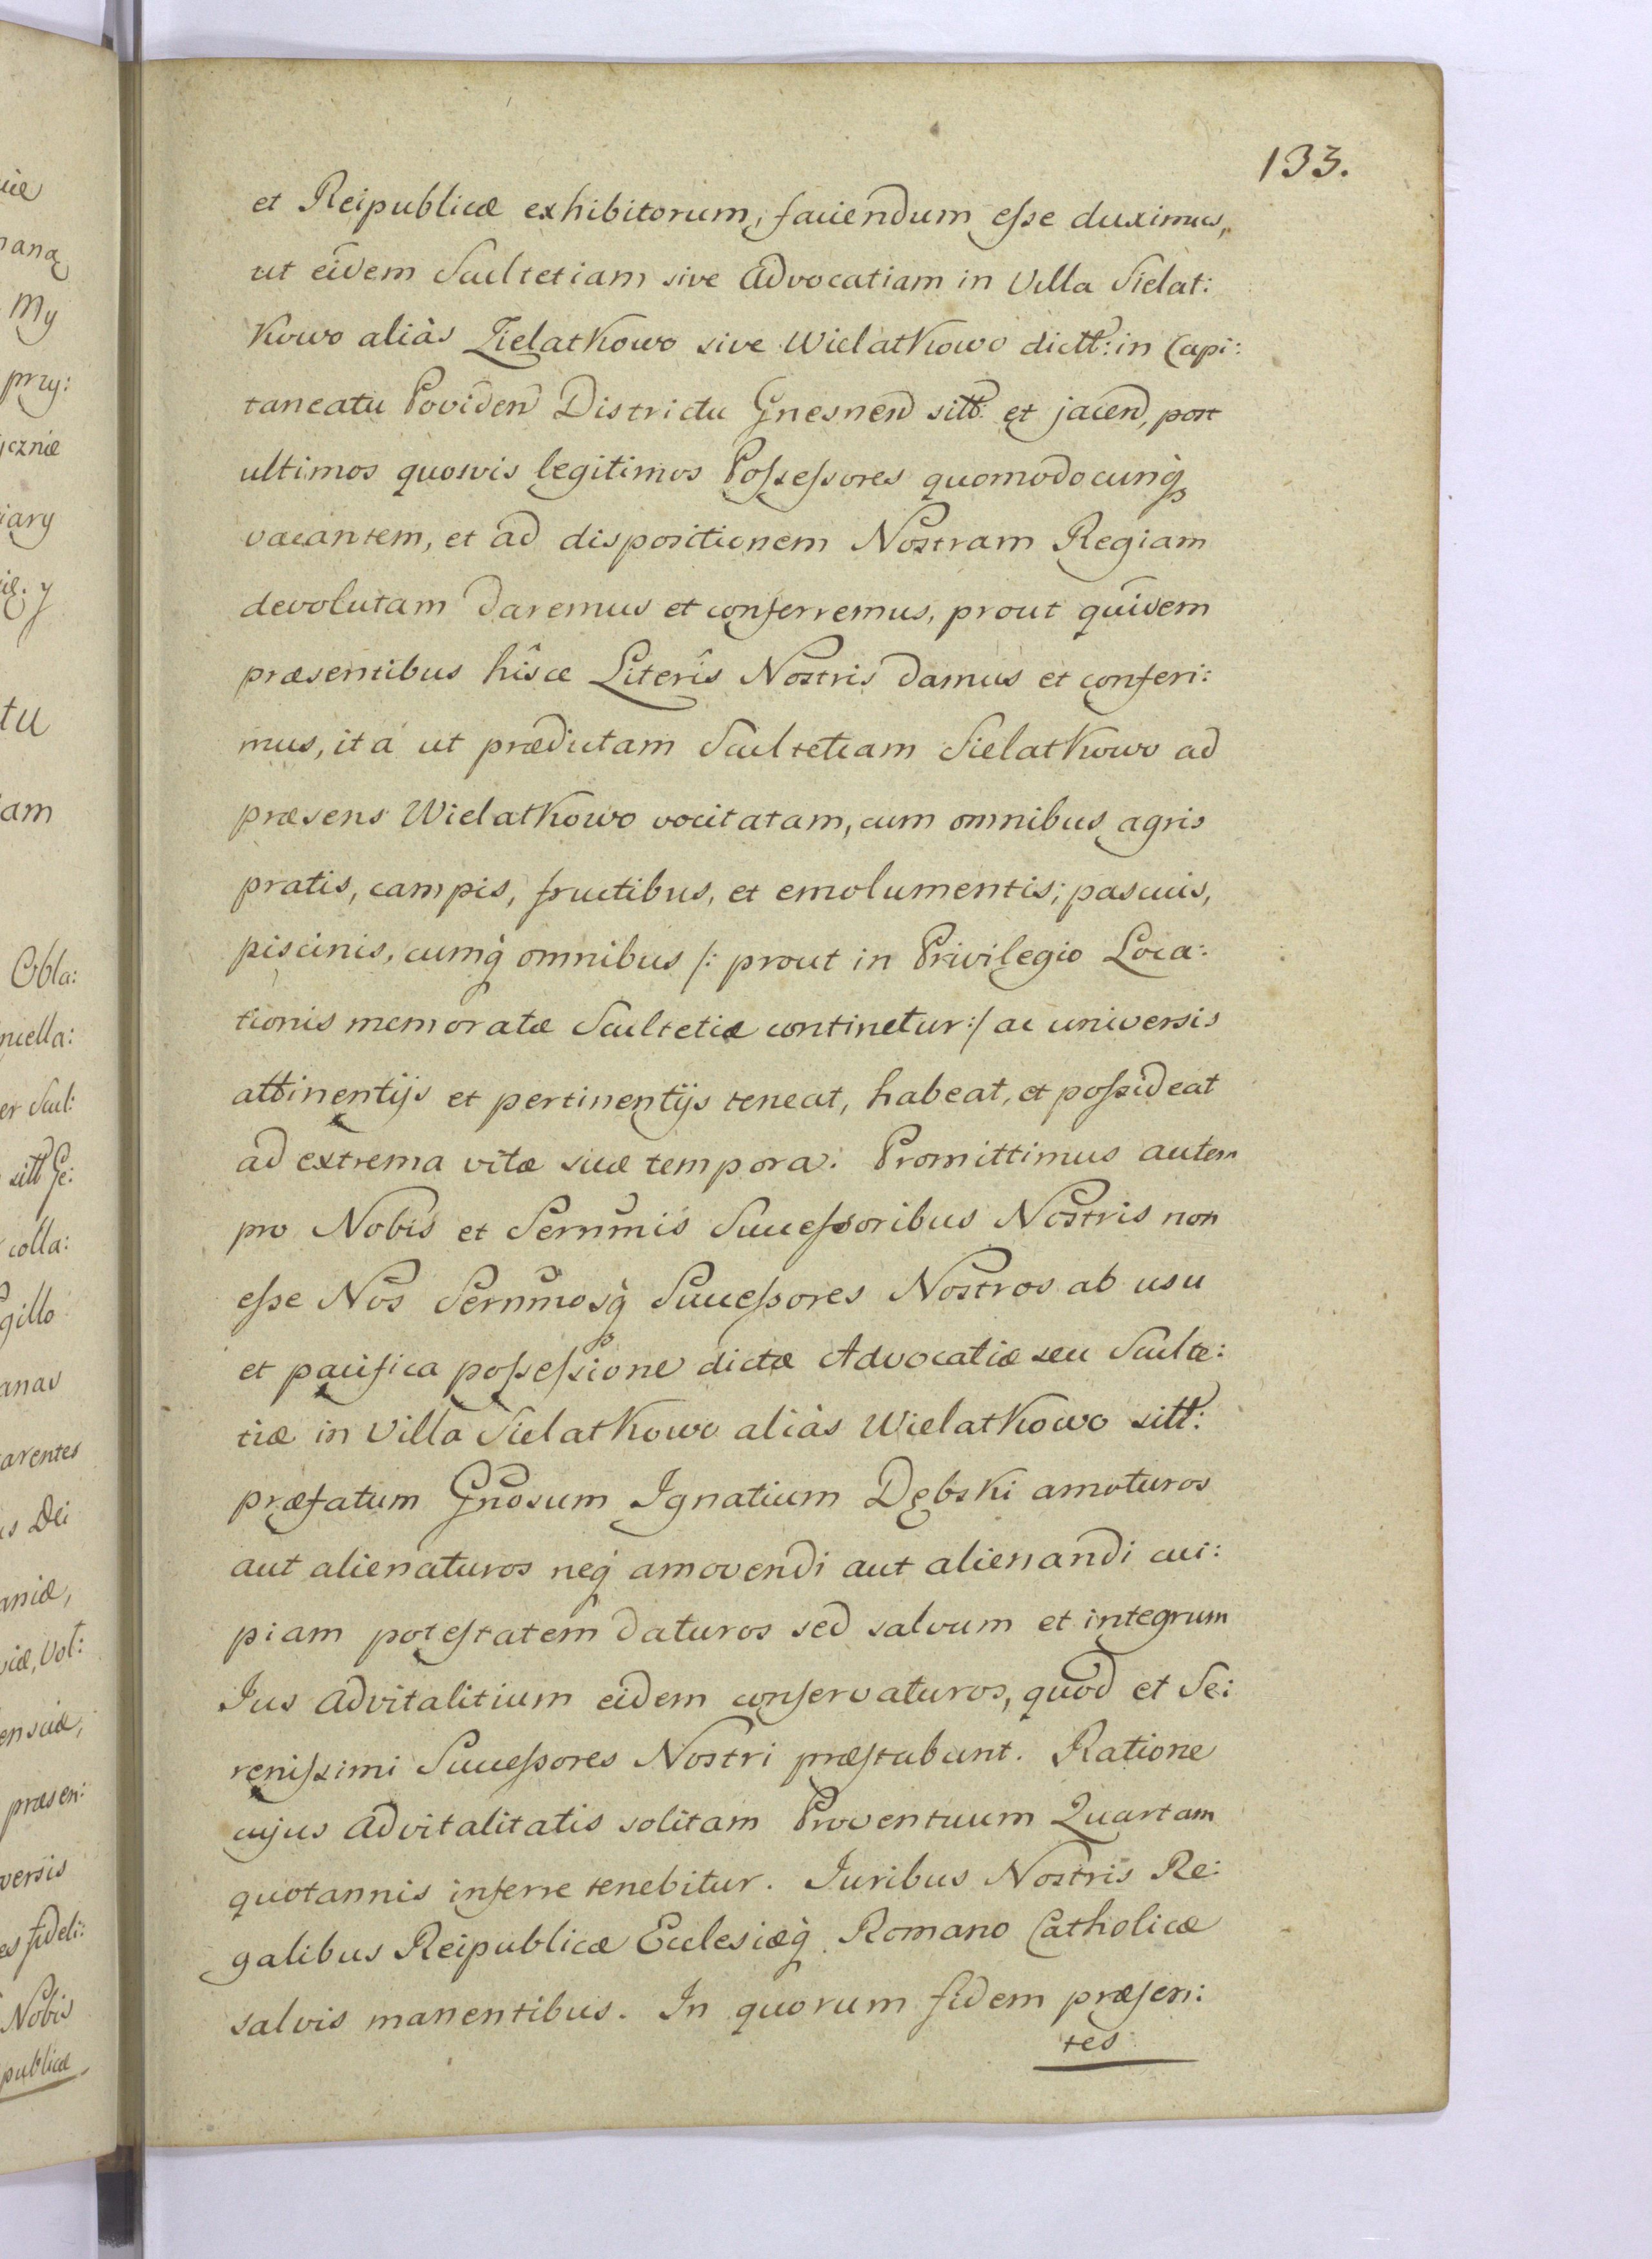 133.
et Reipublicæ exhibitorum, faciendum eſse duximus,
ut eidem Scultetiam sive Advocatiam in Villa Sielat:
kowo aliàs Zielatkowo sive Wielatkowo dictt: in Capi:
taneatu Poviden Districtu Gnesnen sitt: et jacen, post
ultimos quosvis legitimos Poſseſsores quomodocunq
vacantem, et ad dispositionem Nostram Regiam
devolutam daremus et conferremus, prout quidem
præsentibus hîsce Literîs Nostris damus et conferi:
mus, ita ut prædictam Scultetiam Sielatkowo ad
præsens Wielatkowo vocitatam, cum omnibus agris
pratis, campis, fructibus, et emolumentis; pascuis,
piscinis, cumq̀ omnibus /: prout in Privilegio Loca:
tionis memoratæ Scultetiæ continetur :/ ac universis
attinentijs et pertinentijs teneat, habeat, et poſsideat
ad extrema vitæ suæ tempora. Promittimus autem
pro Nobis et Sernmis Succeſsoribus Nostris non
eſse Nos Sernmosq̀ Succeſsores Nostros ab usu
et pacifica poſseſsione dictæ Advocatiæ seu Sculte:
tiæ in Villa Sielatkowo aliàs Wielatkowo sitt:
præfatum Gnosum Ignatium Dębski amoturos
aut alienaturos neq̀ amovendi aut alienandi cui:
piam poteſtatem daturos sed salvum et integrum
Jus Advitalitium eidem conſervaturos, quod et Se:
reniſsimi Succeſsores Nostri præſtabunt. Ratione
cujus Advitalitatis solitam Proventuum Quartam
quotannis inferre tenebitur. Juribus Nostris Re:
galibus Reipublicæ Ecclesiæq̀ Romano Catholicæ
salvis manentibus. In quorum fidem præſen:
tes